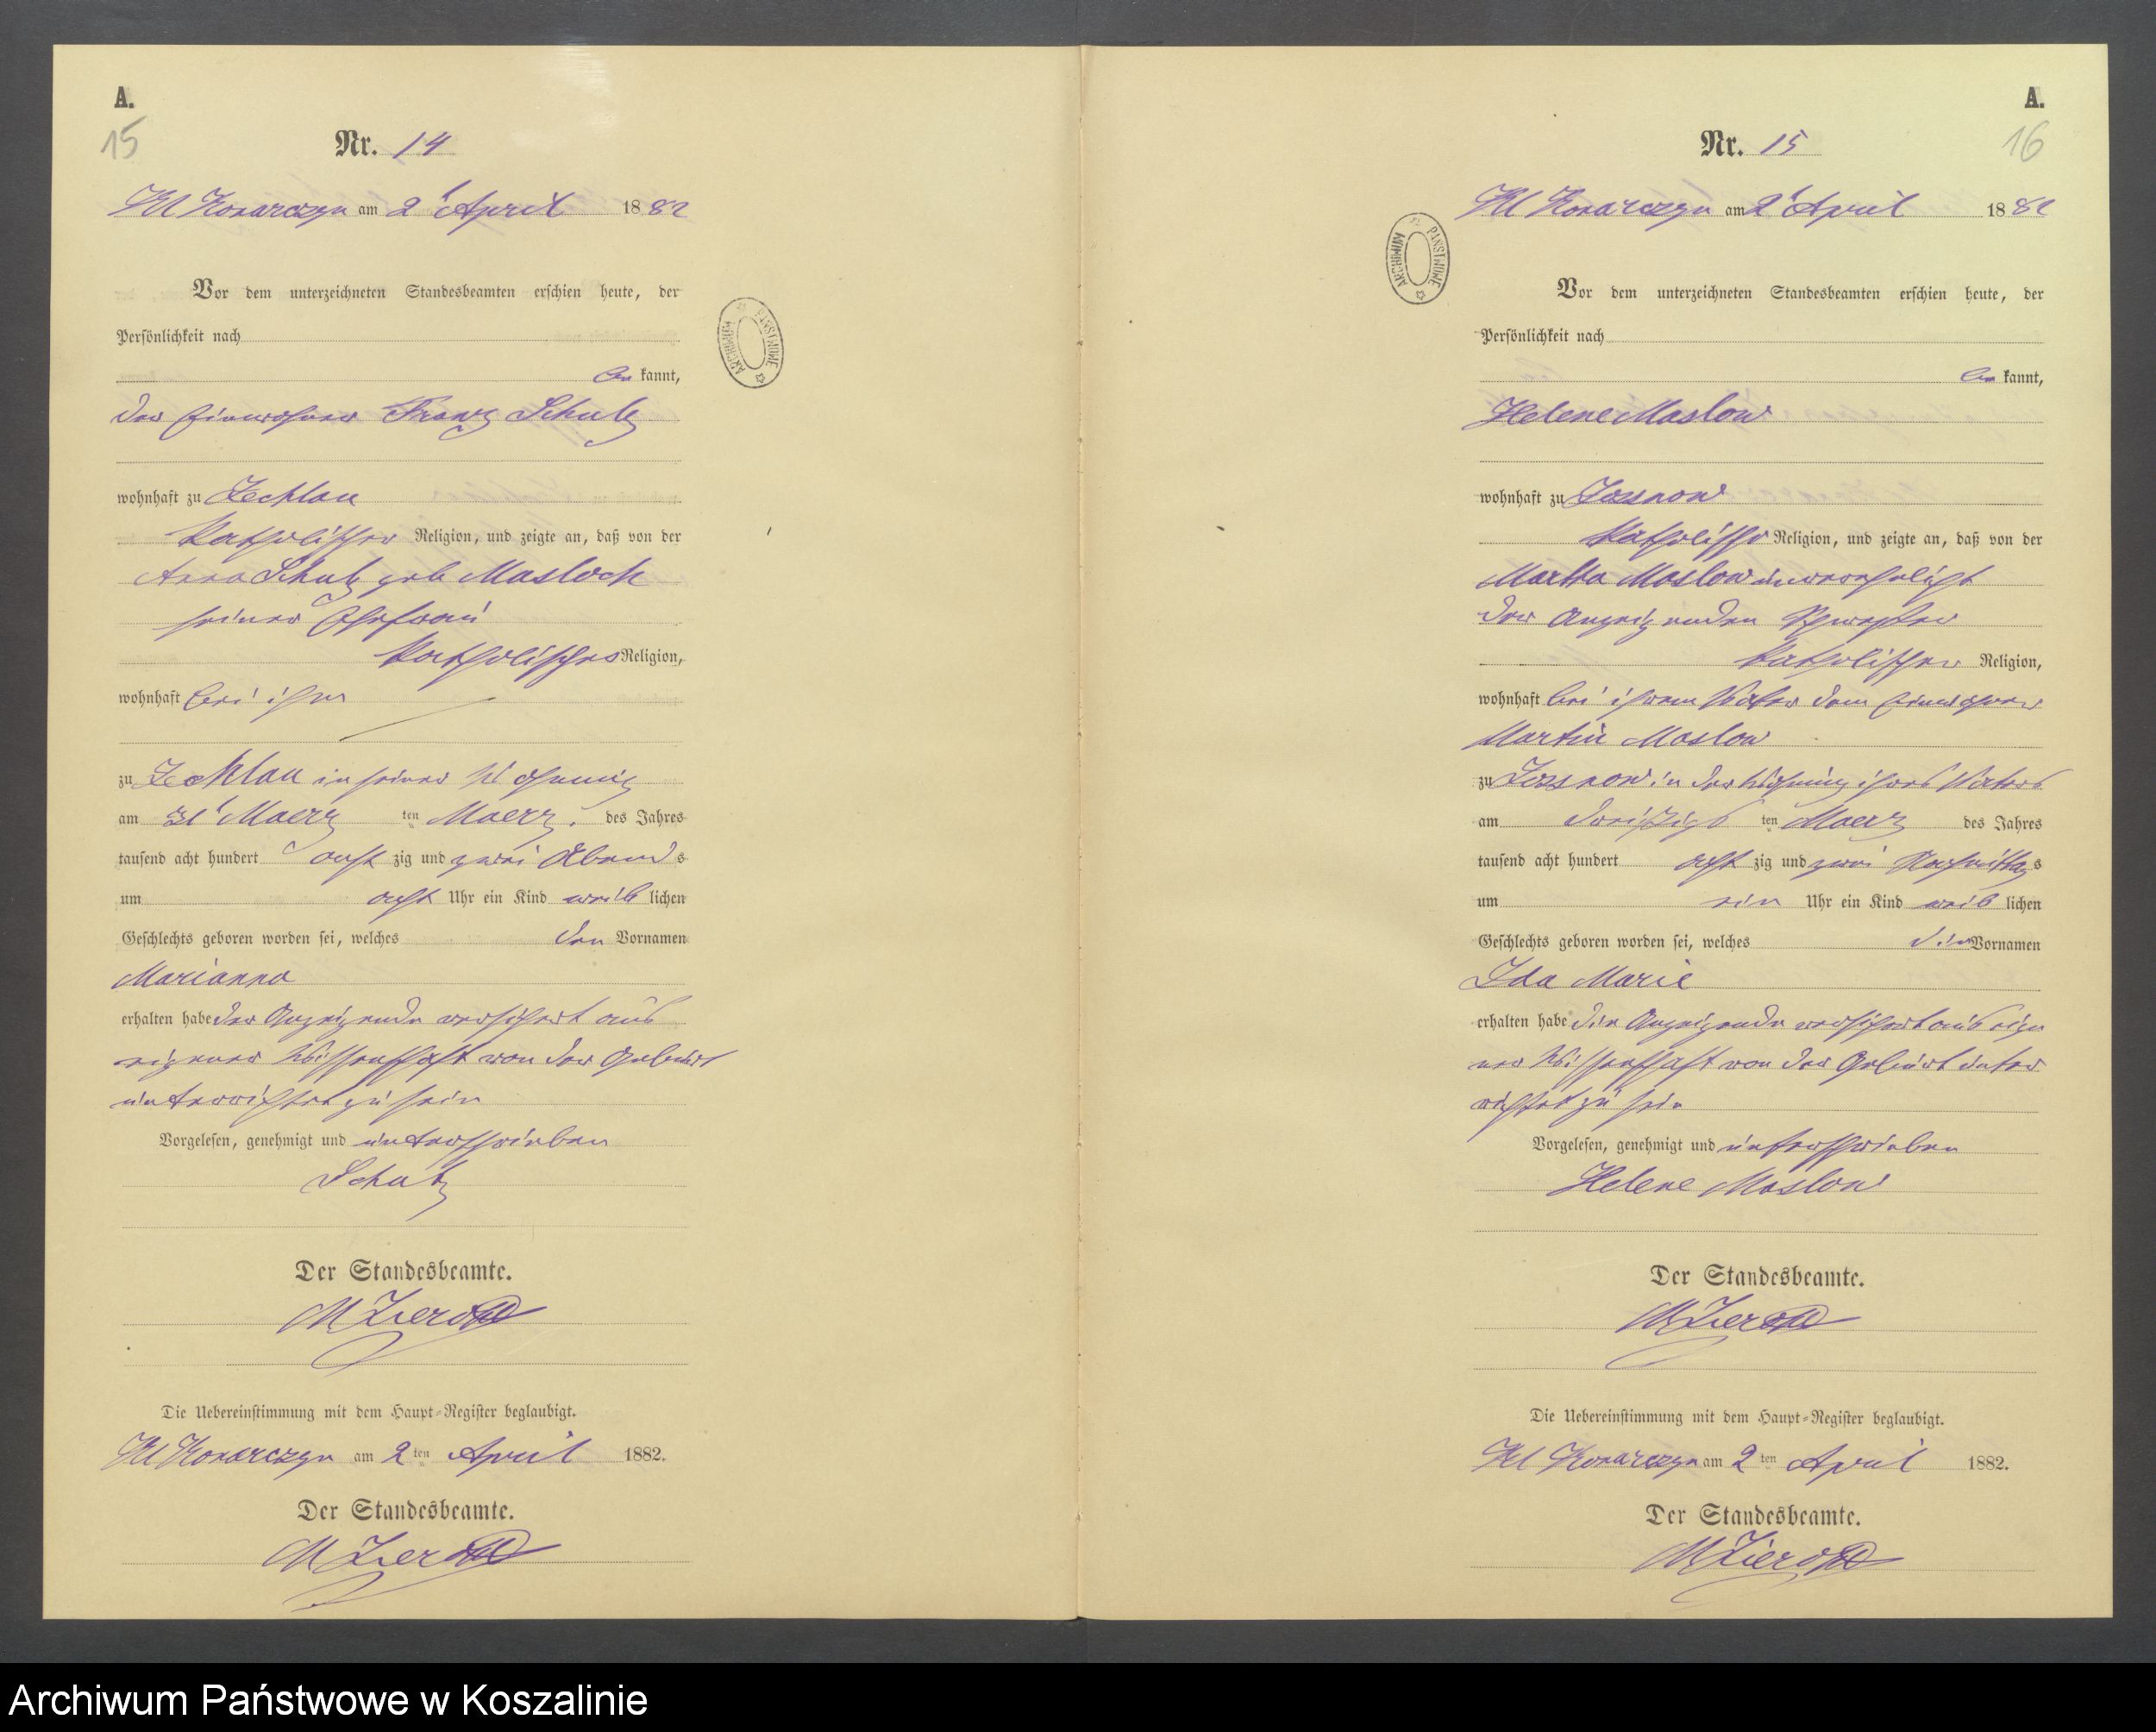 A.
15
Nr. 14
Kl Konarczyn am 2t April 1882
Vor dem unterzeichneten Standesbeamten erschien heute, der
Persönlichkeit nach
be kannt,
der Einwohner Franz Schulz
wohnhaft zu Zechlau
katholischer Religion, und zeigte an, daß von der
Anna Schulz geb Masloch
seiner Ehefrau
katholischer Religion,
wohnhaft bei ihm
zu Zechlau in seiner Wohnung
am 31t Maerz ten Maerz. des Jahres
tausend acht hundert acht zig und zwei Abends
um acht Uhr ein Kind weib lichen
Geschlechts geboren worden sei, welches den Vornamen
Marianna
erhalten habe der Anzeigende versichert aus
eigener Wissenschaft von der Geburt
unterrichtet zu sein
Vorgelesen, genehmigt und unterschrieben
Schulz
Der Standesbeamte.
Die Uebereinstimmung mit dem Haupt-Register beglaubigt.
Kl Konarczyn am 2 ten April 1882.
Der Standesbeamte.
A.
16
Nr. 15
Kl Konarczyn am 2t April 1882
Vor dem unterzeichneten Standesbeamten erschien heute, der
Persönlichkeit nach
be kannt,
Helene Maslow
wohnhaft zu
katholische Religion, und zeigte an, daß von der
Martha Maslow unverehelicht
der Anzeigenden Schwester
katholischer Religion,
wohnhaft bei ihrem Vater dem Einwohner
Martin Maslow
zu in der Wohnung ihres Vaters
am dreißigst ten Maerz des Jahres
tausend acht hundert acht zig und zwei Nachmittags
um ein Uhr ein Kind weib lichen
Geschlechts geboren worden sei, welches die Vornamen
Ida Marie
erhalten habe die Anzeigende versichert aus eige
ner Wissenschaft von der Geburt unter
richtet zu sein
Vorgelesen, genehmigt und unterschrieben
Helene Maslow
Der Standesbeamte.
Die Uebereinstimmung mit dem Haupt-Register beglaubigt.
Kl Konarczyn am 2 ten April 1882.
Der Standesbeamte.
ARCHIWUM PAŃSTWOWE
ARCHIWUM PAŃSTWOWE
Archiwum Państwowe w Koszalinie